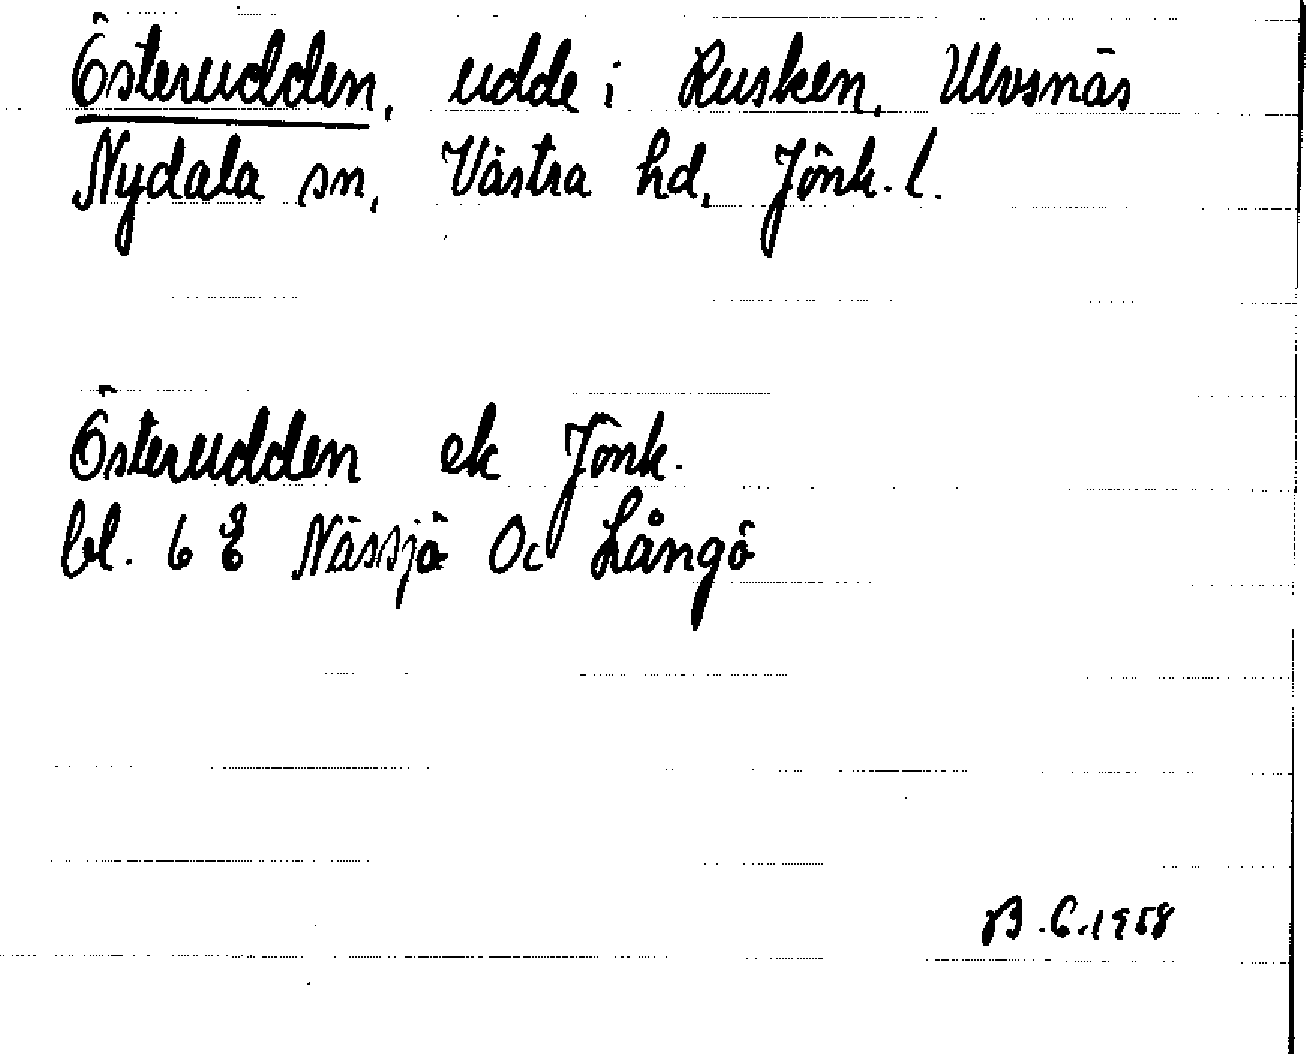 Österudden, udde i Rusken, Ulvsnäs
Nydala sn, Västra hd, Jönk. l.
Österudden ek Jönk.
bl. 6 E Nässjö Oc Långö
B.C. 1958